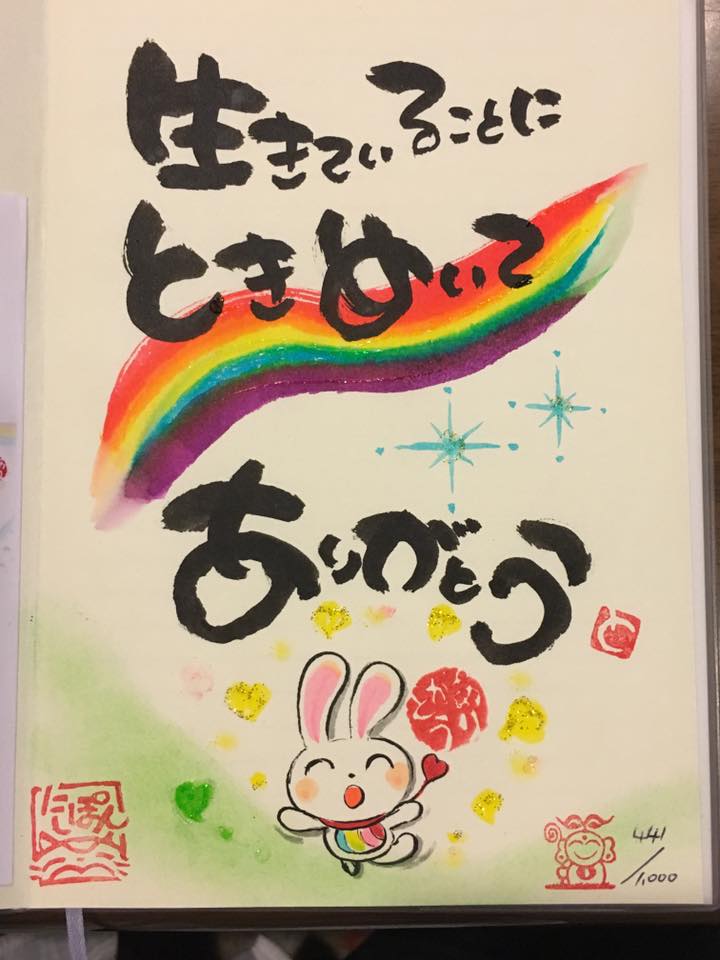 生きていることに
ときめいて
ありがとう
と
にっぽん
441
/1,000